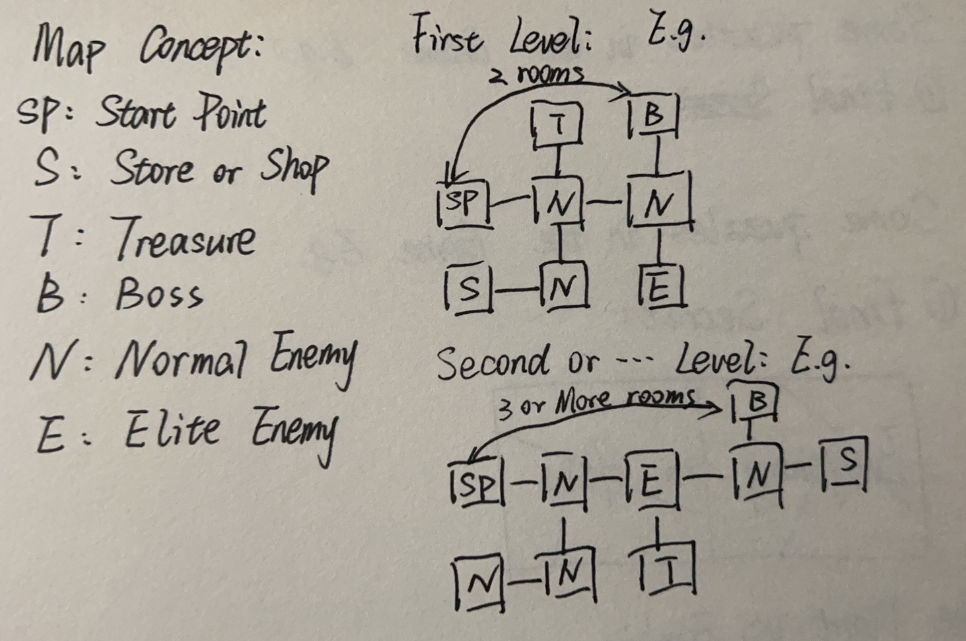 Map Concept:
SP: Start Point
S: Store or Shop
T: Treasure
B: Boss
N: Normal Enemy
E: Elite Enemy
First Level: E.g.
2 rooms
T B
SP N N
S N E
Second or --- Level: E.g.
3 or More rooms
B
SP N E N S
N N T